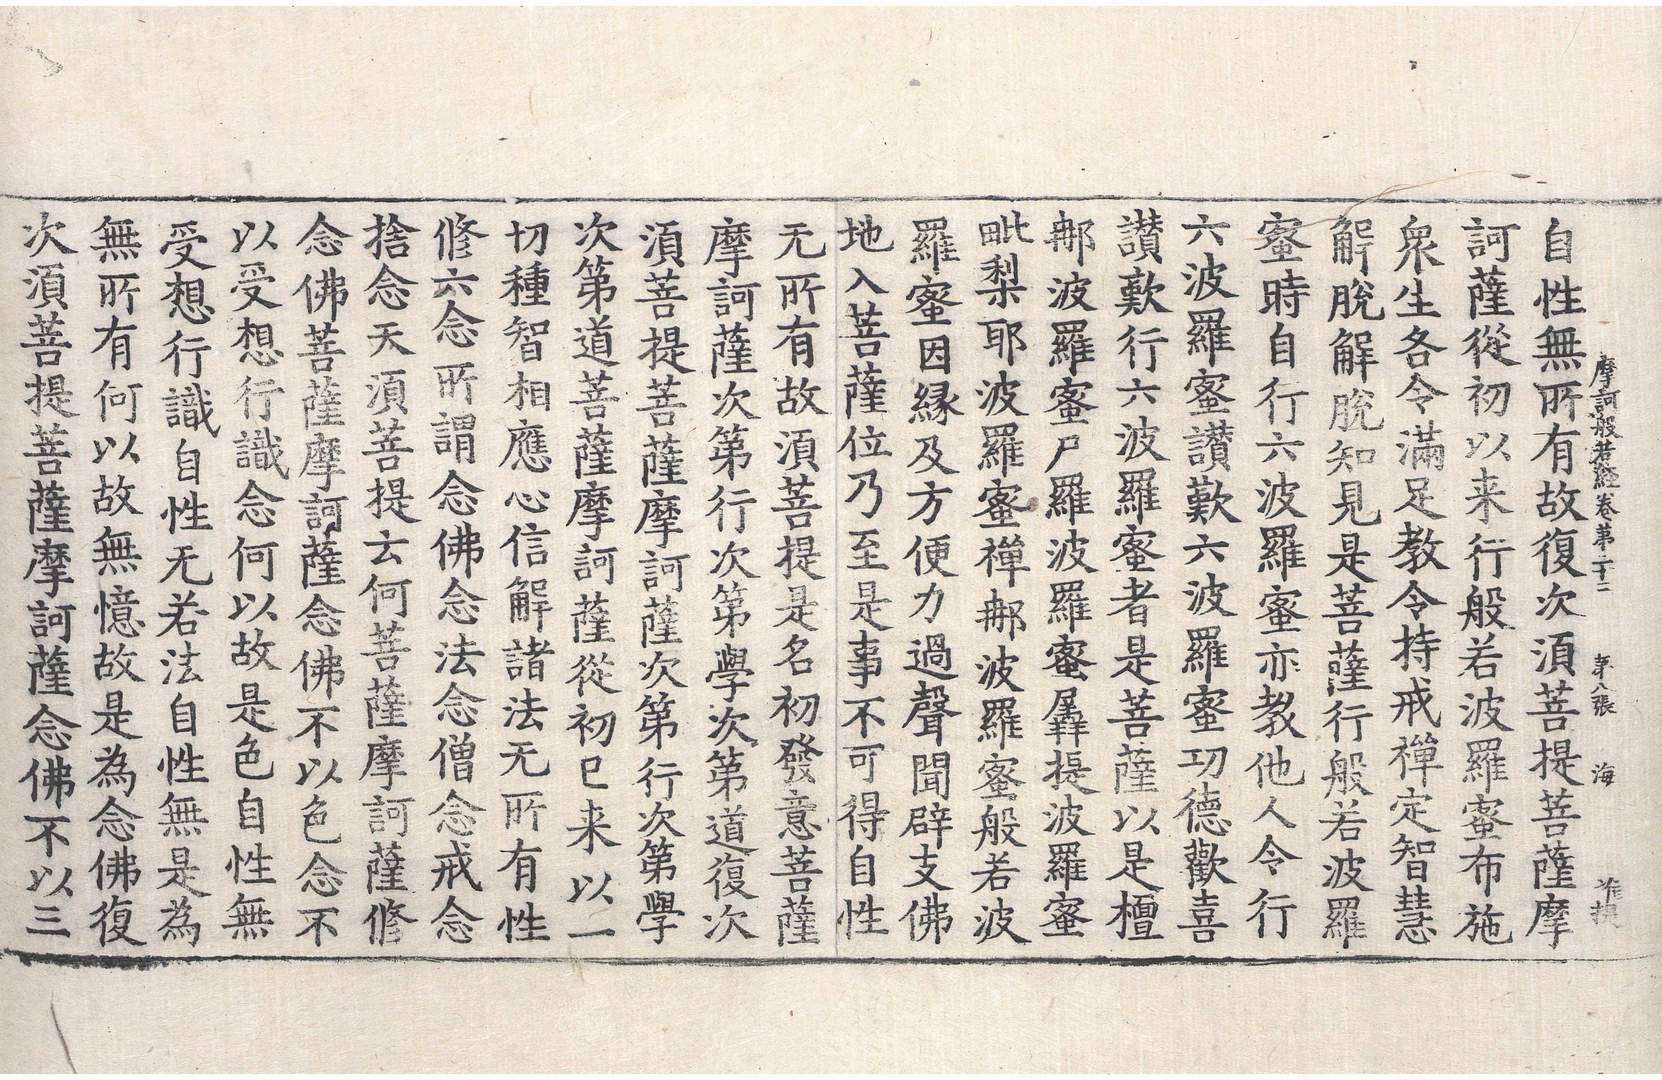 摩訶般若經卷第二十二　第八張　海
自性無所有故復次須菩提菩薩摩
訶薩從初以来行般若波羅蜜布施
衆生各令滿足教令持戒禪定智慧
解脫解脫知見是菩薩行般若波羅
蜜時自行六波羅蜜亦教他人令行
六波羅蜜讃歎六波羅蜜功德歡喜
讃歎行六波羅蜜者是菩薩以是檀
𨚗波羅蜜尸羅波羅蜜羼提波羅蜜
毗梨耶波羅蜜禪𨚗波羅蜜般若波
羅蜜因緣及方便力過聲聞辟支佛
地入菩薩位乃至是事不可得自性
无所有故須菩提是名初發意菩薩
摩訶薩次第行次第學次第道復次
須菩提菩薩摩訶薩次第行次第學
次第道菩薩摩訶薩從初已来以一
切種智相應心信解諸法无所有性
修六念所謂念佛念法念僧念戒念
捨念天須菩提云何菩薩摩訶薩修
念佛菩薩摩訶薩念佛不以色念不
以受想行識念何以故是色自性無
受想行識自性无若法自性無是為
無所有何以故無憶故是為念佛復
次須菩提菩薩摩訶薩念佛不以三